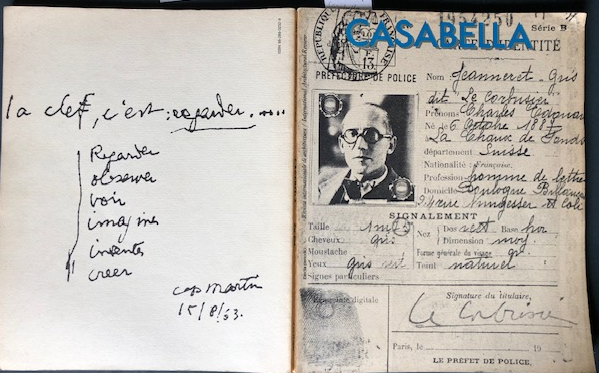 la clef, c'est: regarder.....
Regarder
observer
voir
imaginer
inventer
creer
cap martin
15/8/63.
CASABELLA
Série B
CARTE D'IDENTITÉ
RÉPUBLIQUE FRANÇAISE
13
PRÉFECTURE DE POLICE
Nom Jeanneret-Gris
dit Le Corbusier
Prénoms Charles Edouard
Né le 6 Octobre 1887
La Chaux de Fonds
département Suisse
Nationalité: Française.
Profession homme de lettres
Domicile Boulogne Billancourt
rue Nungesser et Coli
SIGNALEMENT
Taille 1m75
Cheveux gris
Moustache
Yeux gris vert
Signes particuliers
Nez Dos rect Base hor
Dimension moy
Forme générale du visage
Teint naturel
Empreinte digitale
Signature du titulaire,
Le Corbusier
Paris, le 19
LE PRÉFET DE POLICE,